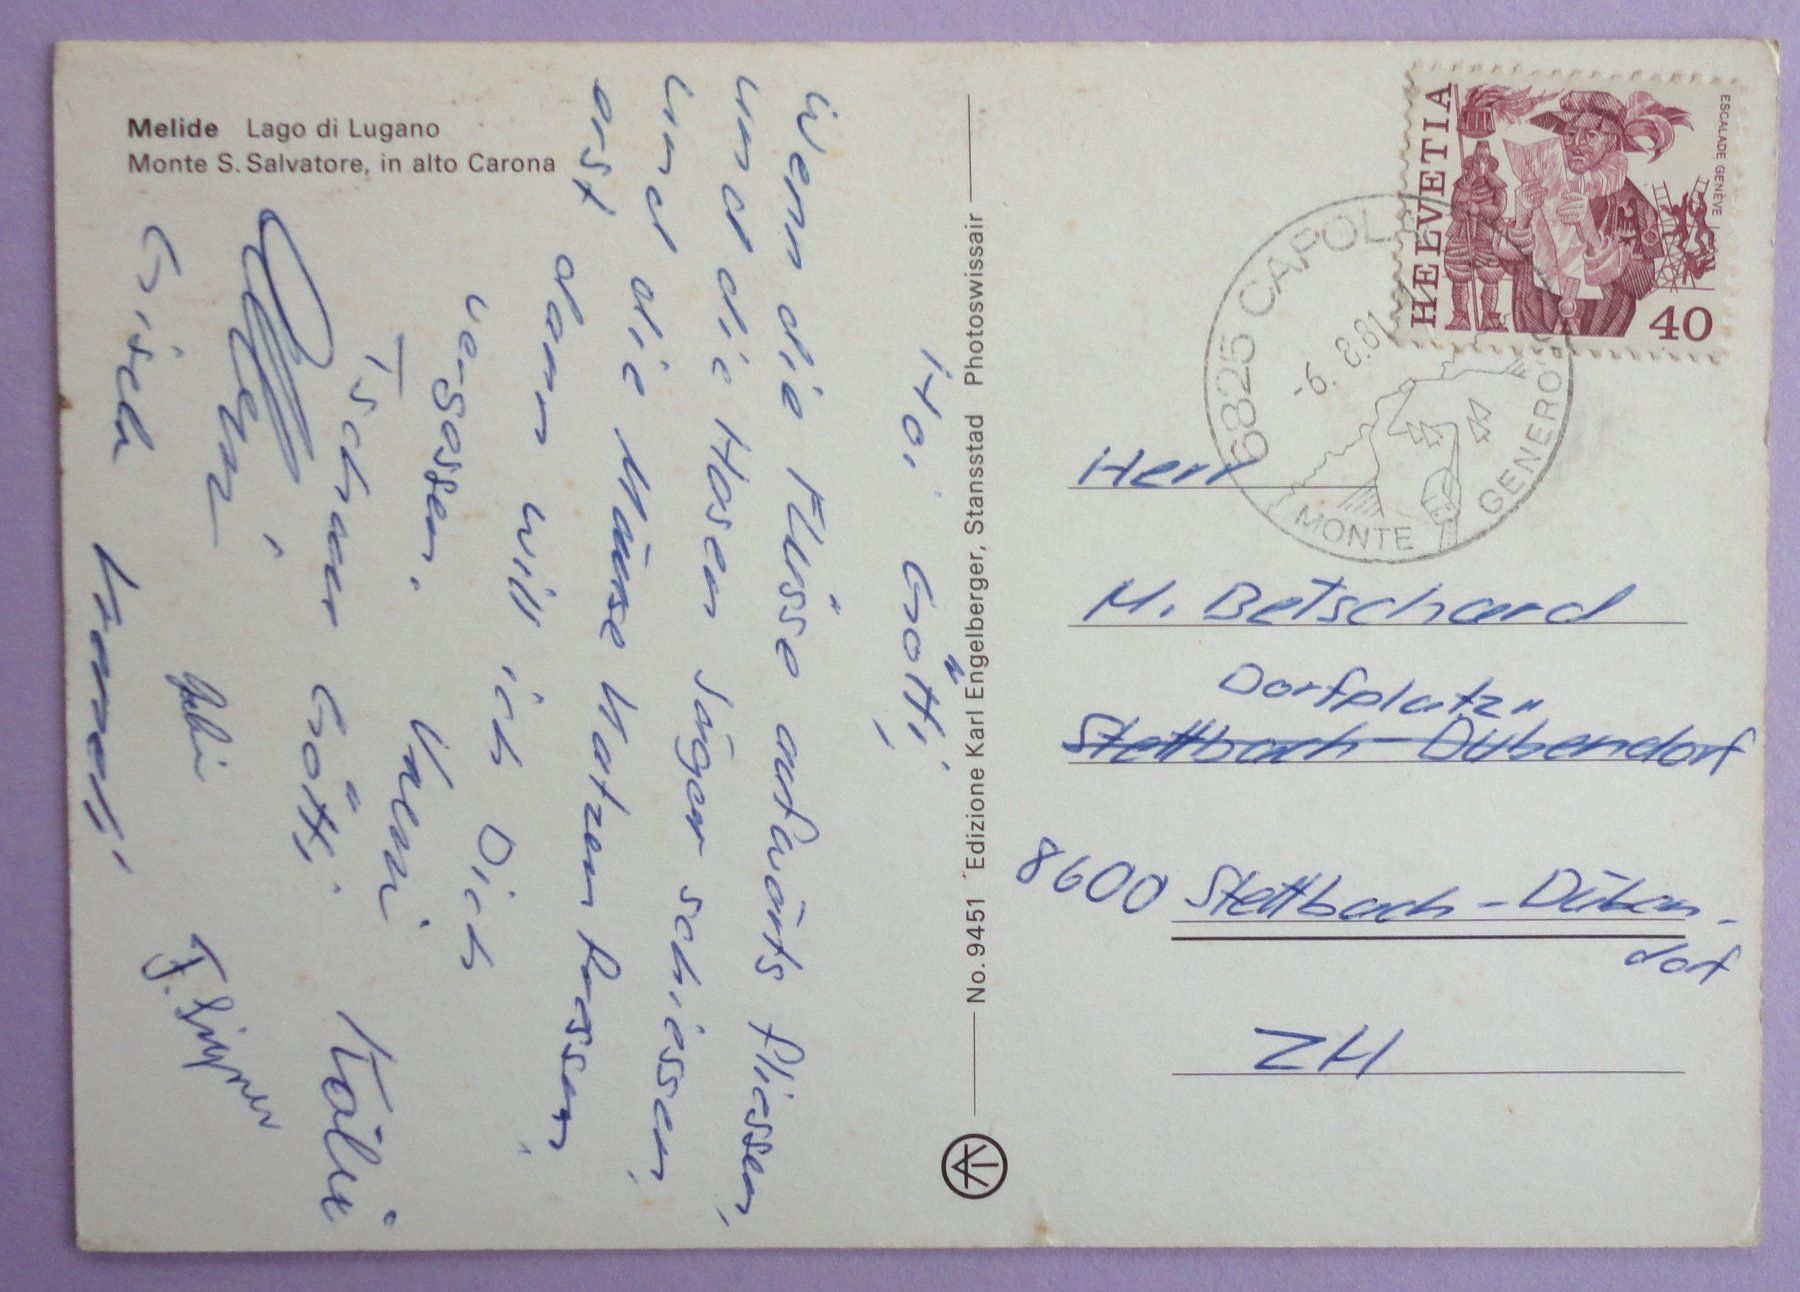 Melide Lago di Lugano
Monte S. Salvatore, in alto Carona
Hoi Götti,
Wenn die Flüsse aufwärts fliessen,
und die Hasen Jäger schiessen,
und die Mäuse Katzen fressen,
erst dann will ich Dich
vergessen.
Tschau Götti
Vreni
Köbi
Gisela
Gabi
Hansli
No. 9451 Edizione Karl Engelberger, Stansstad Photoswissair
HELVETIA
ESCALADE GENÈVE
40
6825 CAPOL
-6. 8.81
MONTE GENEROSO
Herr
M. Betschard
Dorfplatz
Stettbach-Dübendorf
8600 Stettbach-Düben-
dorf
ZH